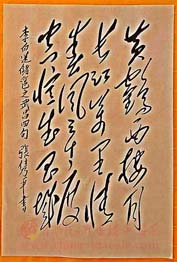 黄鹤西楼月
长江万里情
春风三十度
空忆武昌城
李白送储邕之武昌四句 張